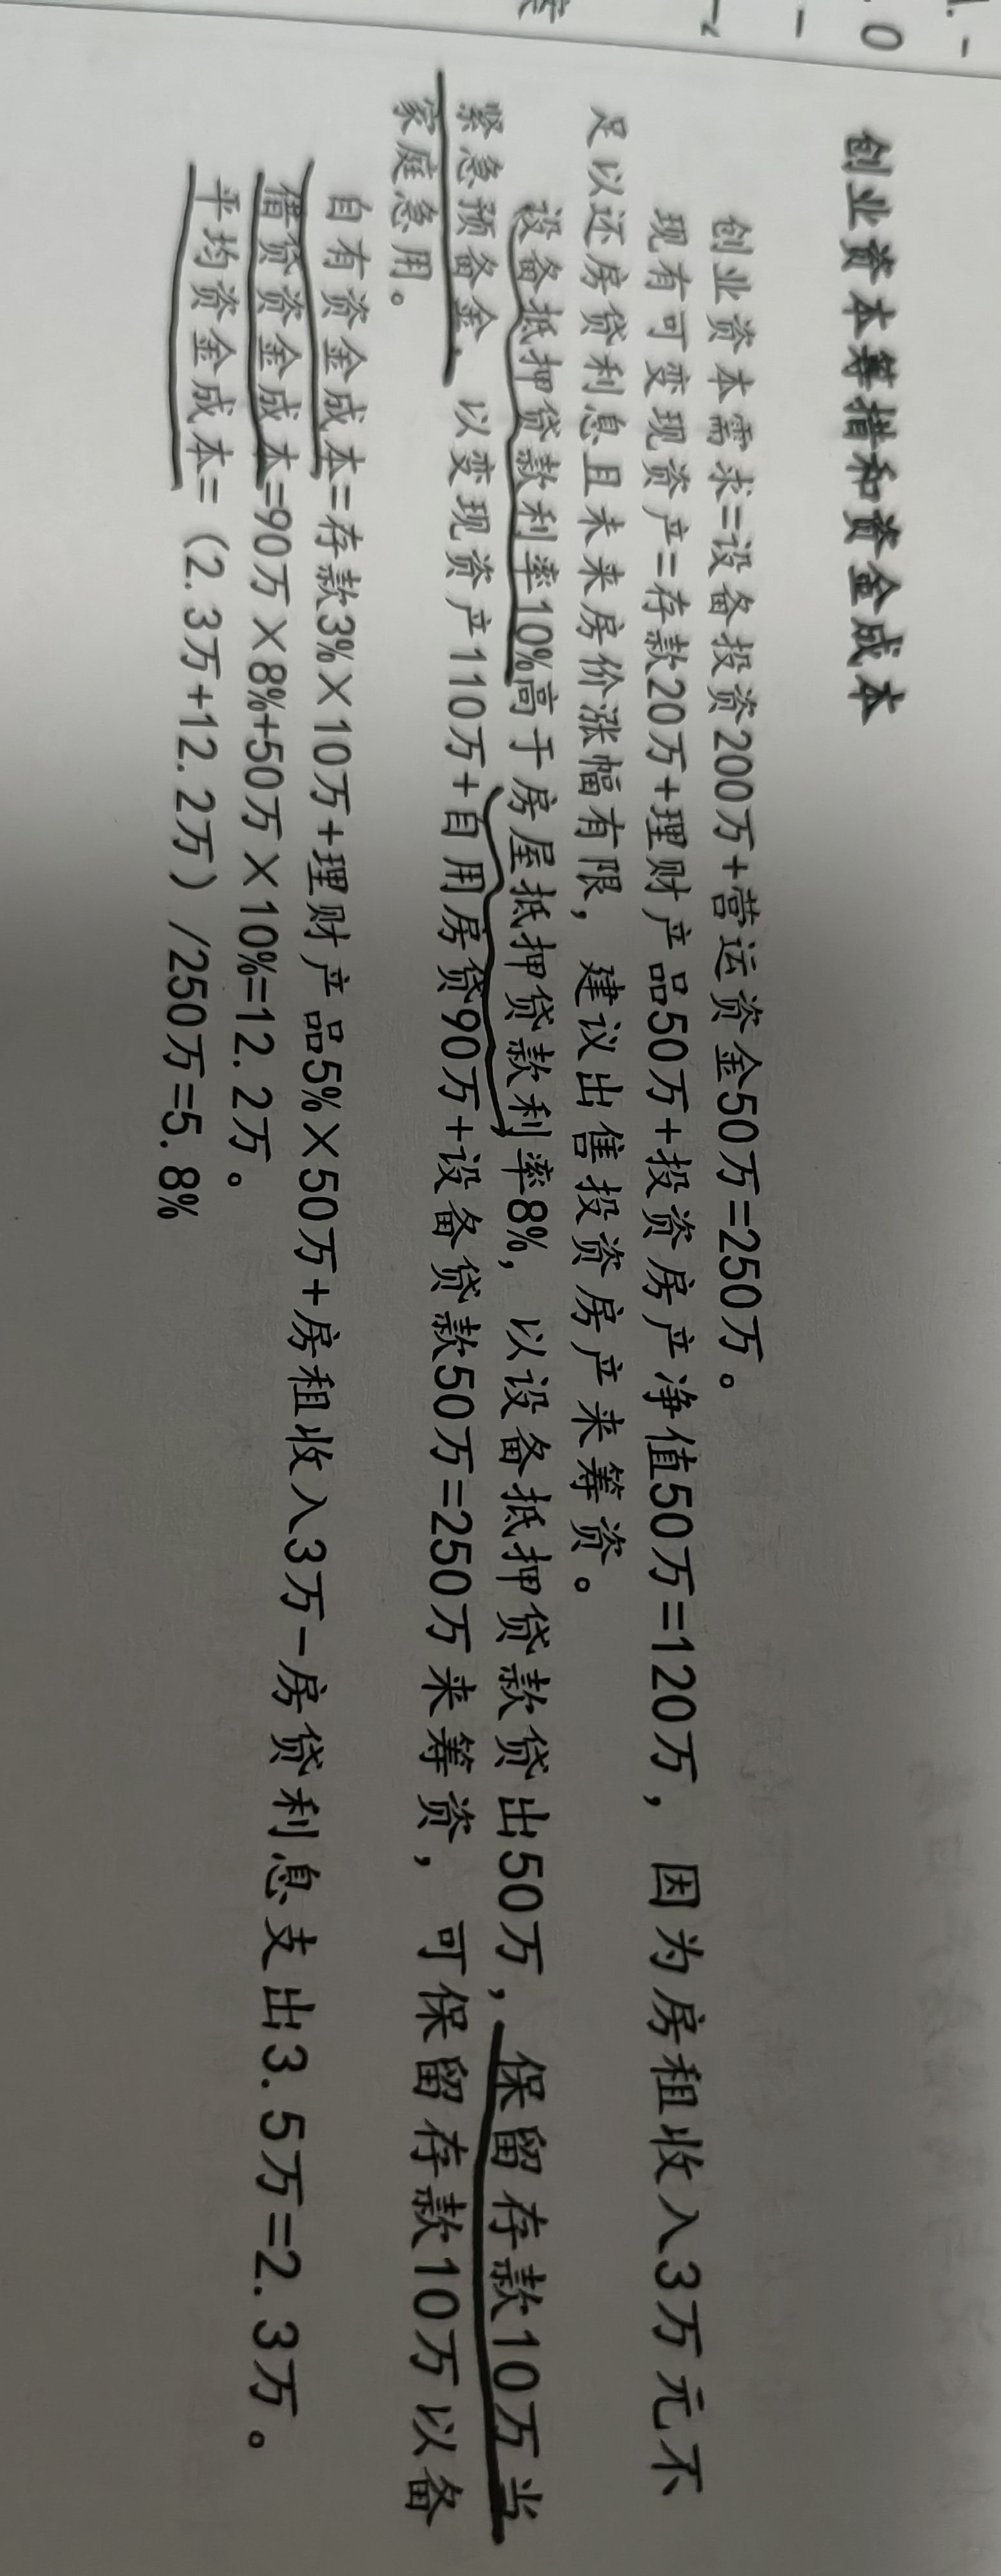 创业资本筹措和资金成本
创业资本需求=设备投资200万+营运资金50万=250万。
现有可变现资产=存款20万+理财产品50万+投资房产净值50万=120万，因为房租收入3万元不
足以还房贷利息且未来房价涨幅有限，建议出售投资房产来筹资。
设备抵押贷款利率10%高于房屋抵押贷款利率8%，以设备抵押贷款贷出50万，保留存款10万当
紧急预备金，以变现资产110万+自用房贷90万+设备贷款50万=250万来筹资，可保留存款10万以备
家庭急用。
自有资金成本=存款3%×10万+理财产品5%×50万+房租收入3万-房贷利息支出3.5万=2.3万。
借贷资金成本=90万×8%+50万×10%=12.2万。
平均资金成本=（2.3万+12.2万）/250万=5.8%